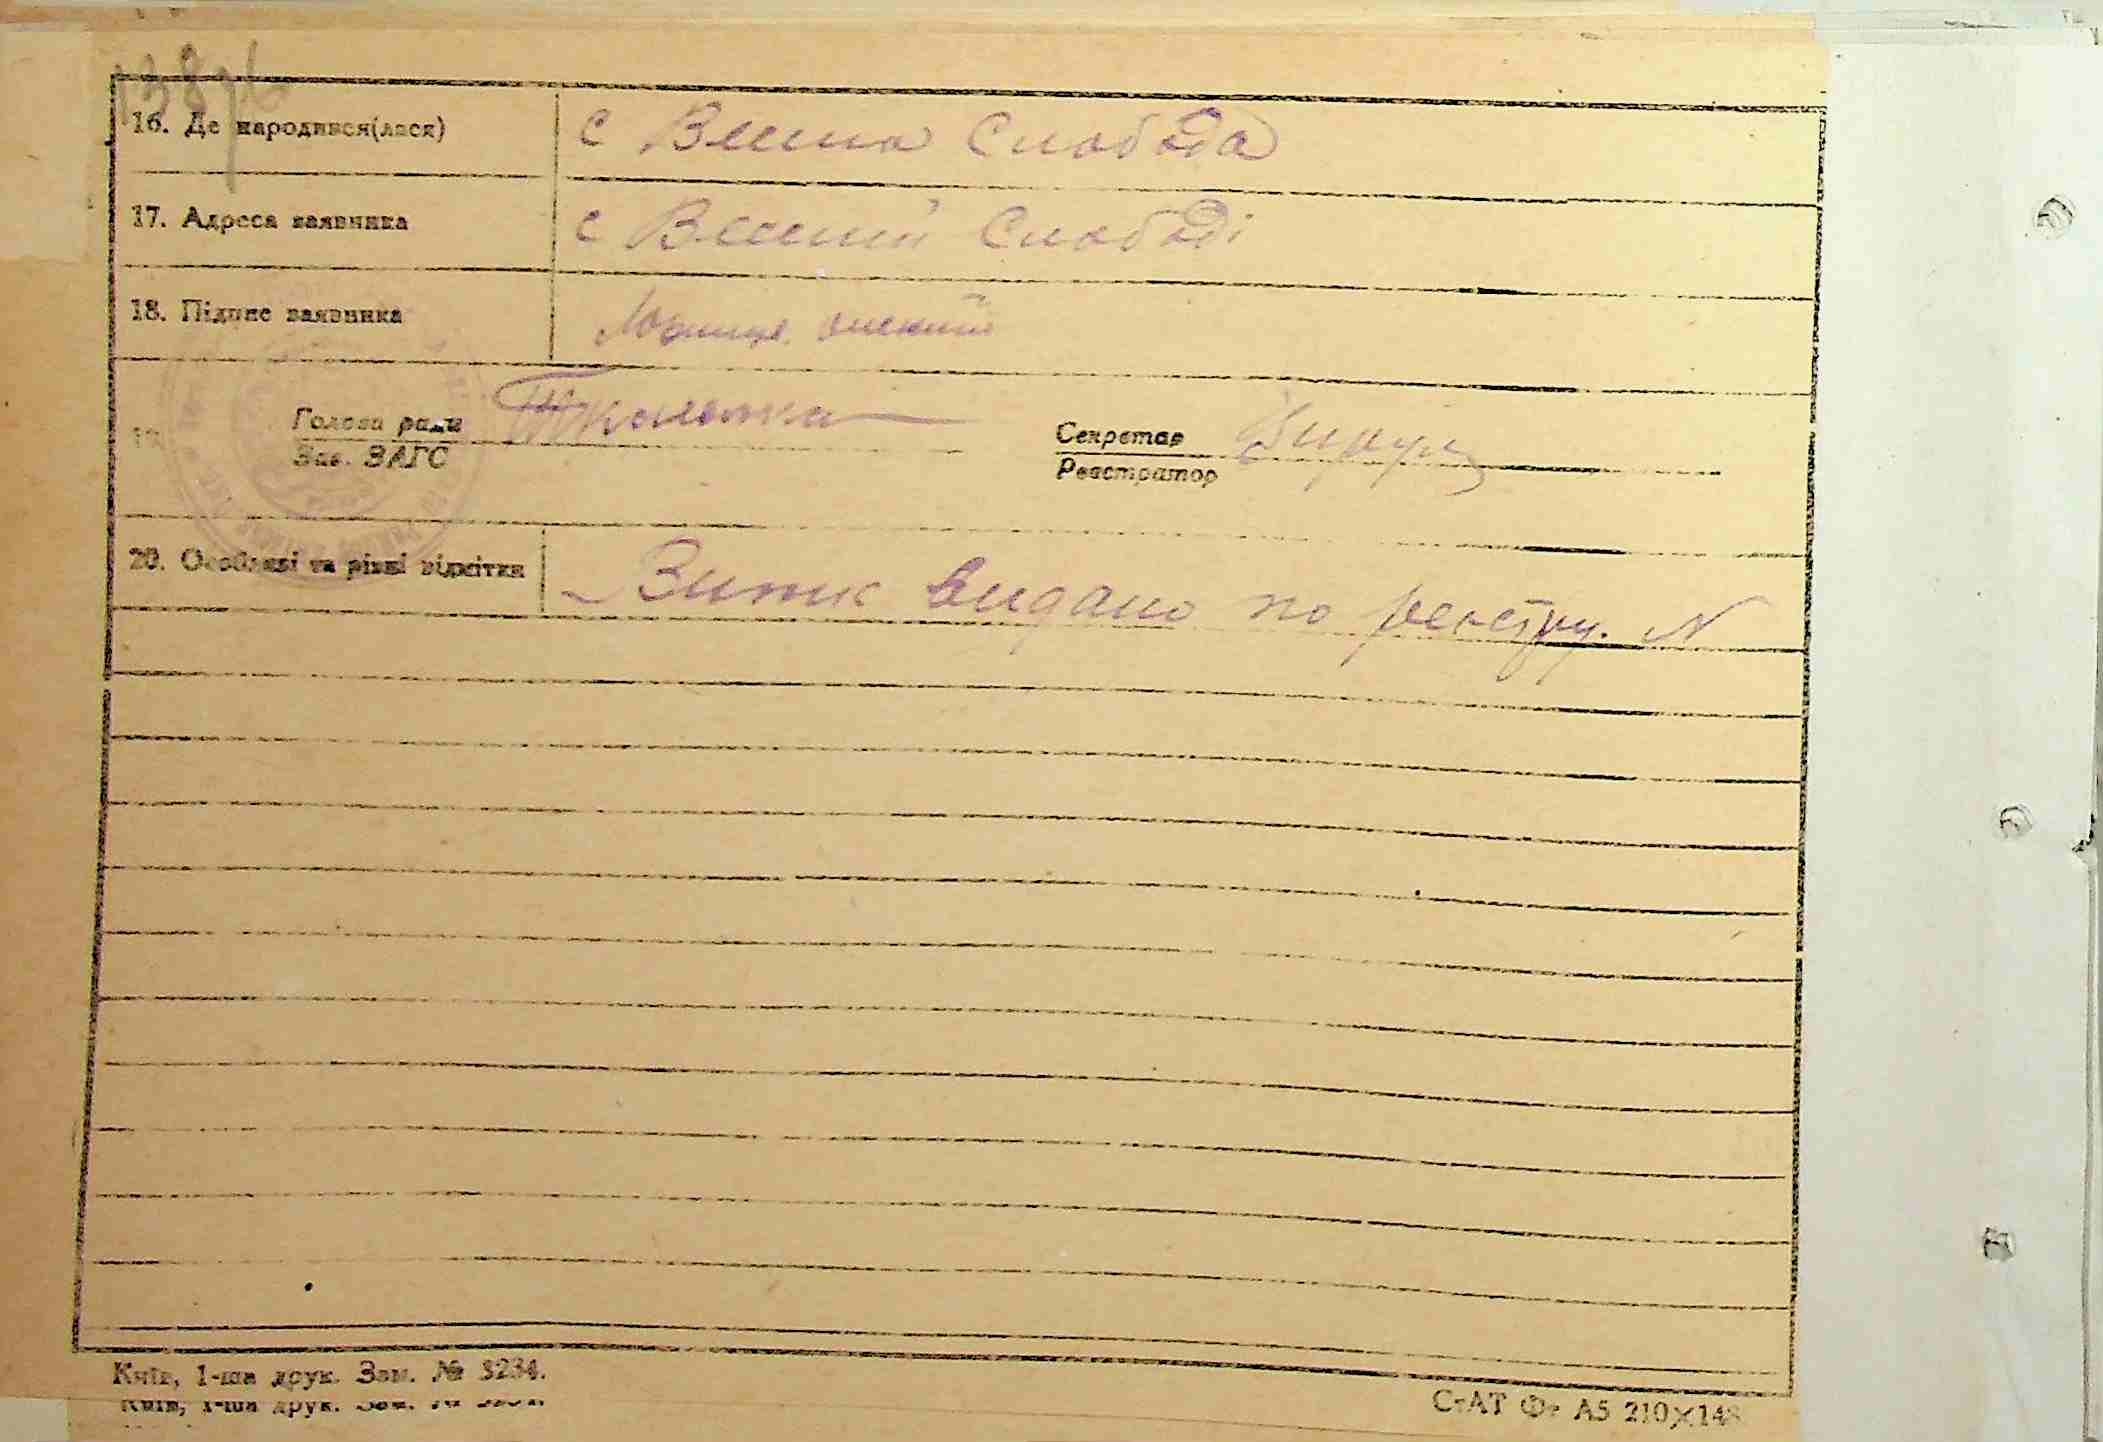 138
16. Де народився(лася) с Весела Слобода
17. Адреса заявника с Веселій Слободі
18. Підпис заявника
19. Голова ради Секретар
Зав. ЗАГС Реєстратор
20. Особливі та різні відмітки Витяг видано по реєстру. N
Київ, 1-ша друк. Зам. № 3234.
Київ, 1-ша друк. Зам. №
СтАТ Фт А5 210×148